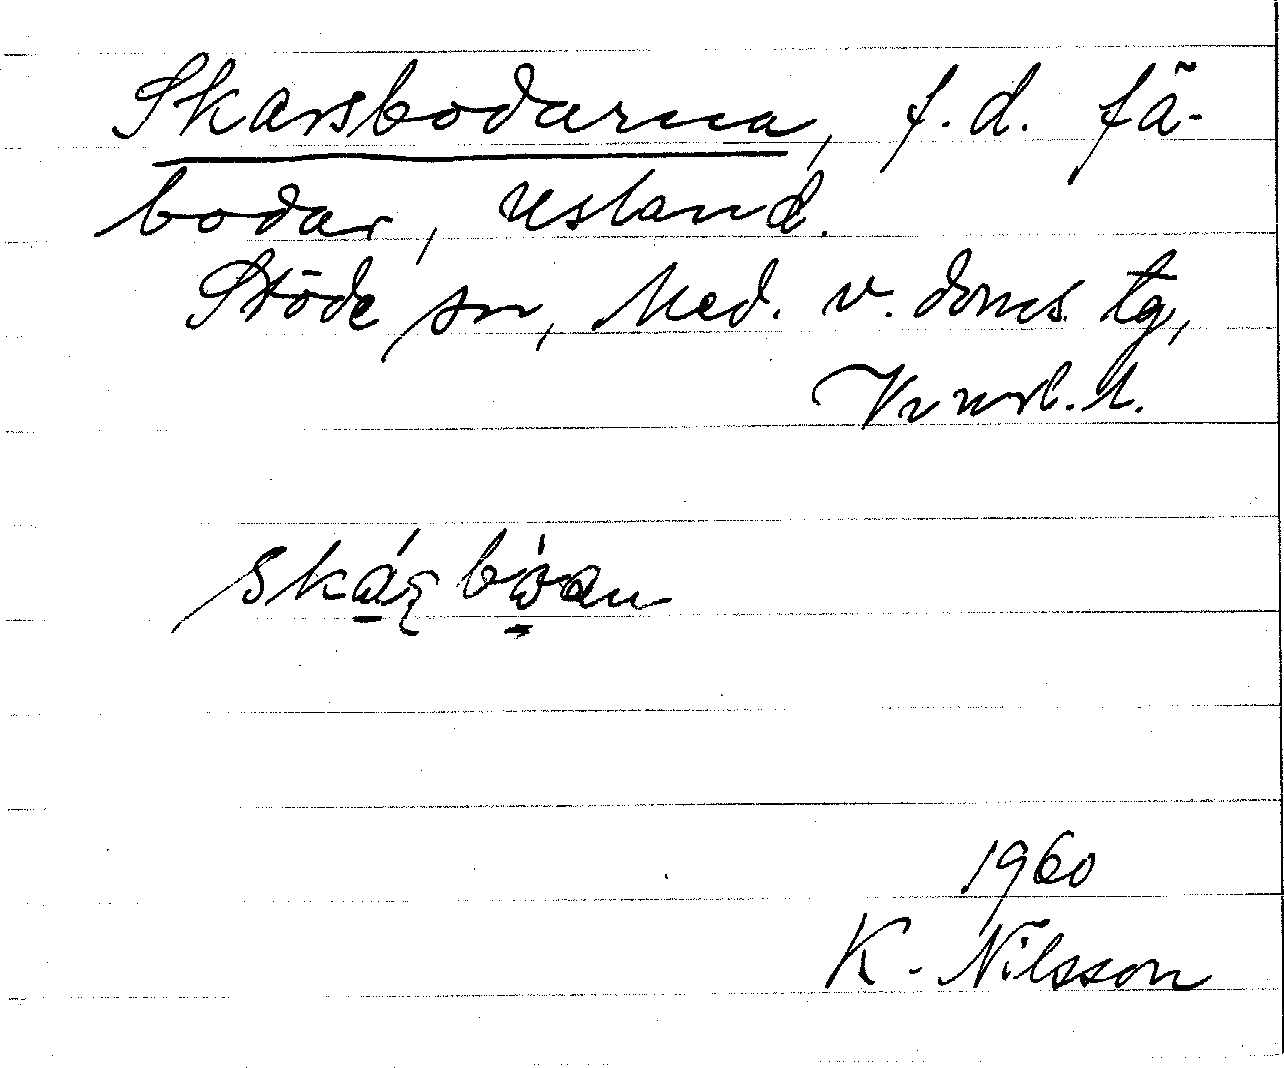 Skarsbodarna, f.d. fä-
bodar, Usland.
Stöde sn, Med. v. doms. tg,
Vnrl. l.
skáʂbòan
1960
K. Nilsson